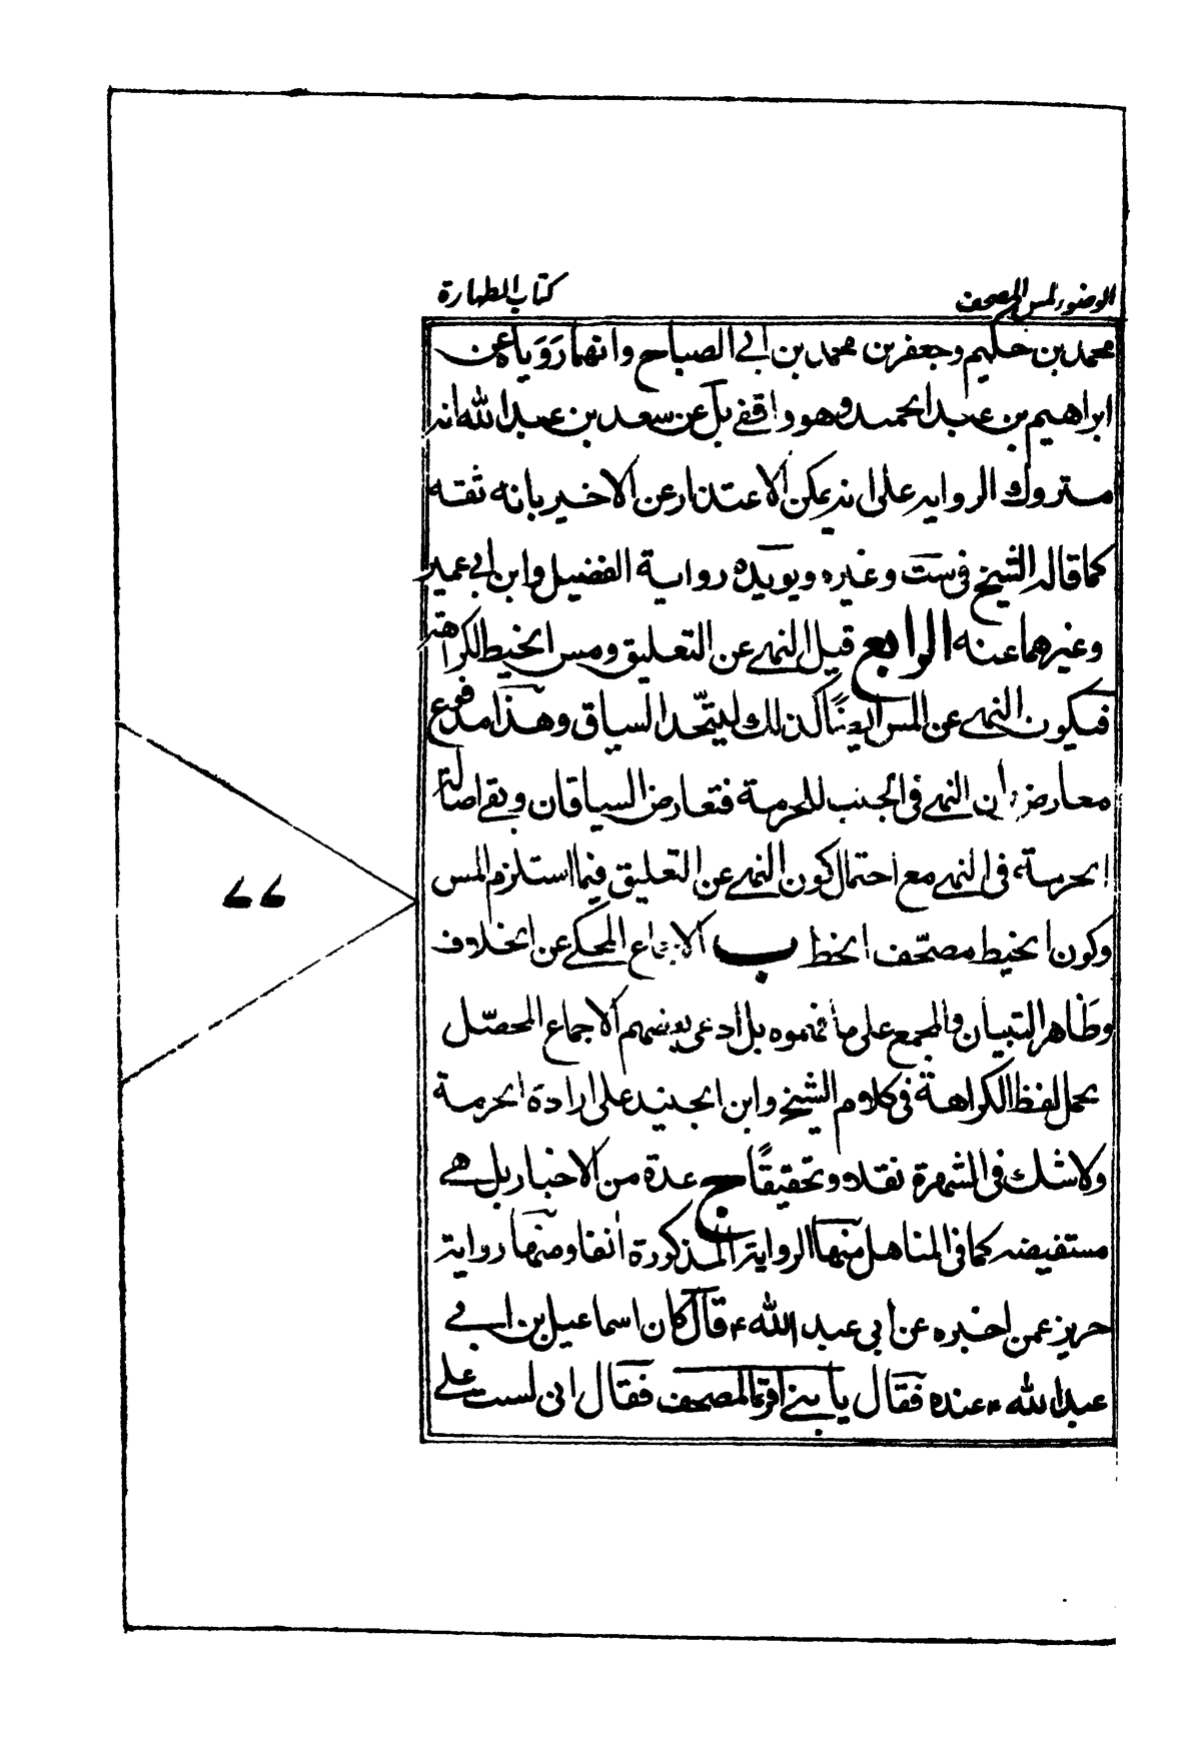 الوضوء لمس المصحف
كتاب الطهارة
محمد بن حكيم وجعفر بن محمد بن ابي الصباح وانهما رَوَيا عن
ابراهيم بن عبد الحميد وهو واقفے بل عن سعد بن عبد الله انه
متروك الروايه على انه يمكن الاعتذار عن الاخير بانه ثقه
كما قاله الشيخ فى ست وغيره ويويده رواية الفضيل وابن ابي عمير
وغيرهما عنه الرابع قيل النهے عن التعليق ومس الخيط للكراهة
فيكون النهے عن المس ايضًا كذلك ليتّحد السياق وهذا مدفوع
معارض بان النهے فى الجنب للحرمة فتعارض السياقان وبقے اصالة
الحرمة فى النهے مع احتمال كون النهے عن التعليق فيما استلزم المس
وكون الخيط مصحّف الخط ب الاجماع المحكے عن الخلاف
وظاهر التبيان والمجمع على ما فهموه بل ادعى بعضهم الاجماع المحصّل
بحمل لفظ الكراهة فى كلام الشيخ وابن الجنيد على ارادة الحرمة
ولا شك فى الشهرة نقلا وتحقيقًا ج عدة من الاخبار بل هے
مستفيضه كما فى المناهل منها الرواية المذكورة انفا ومنها رواية
حريز عمن اخبره عن ابي عبد الله ء قال كان اسماعيل بن ابے
عبد الله ء عنده فقال يا بنے اقرء المصحف فقال انى لست على
۶۶